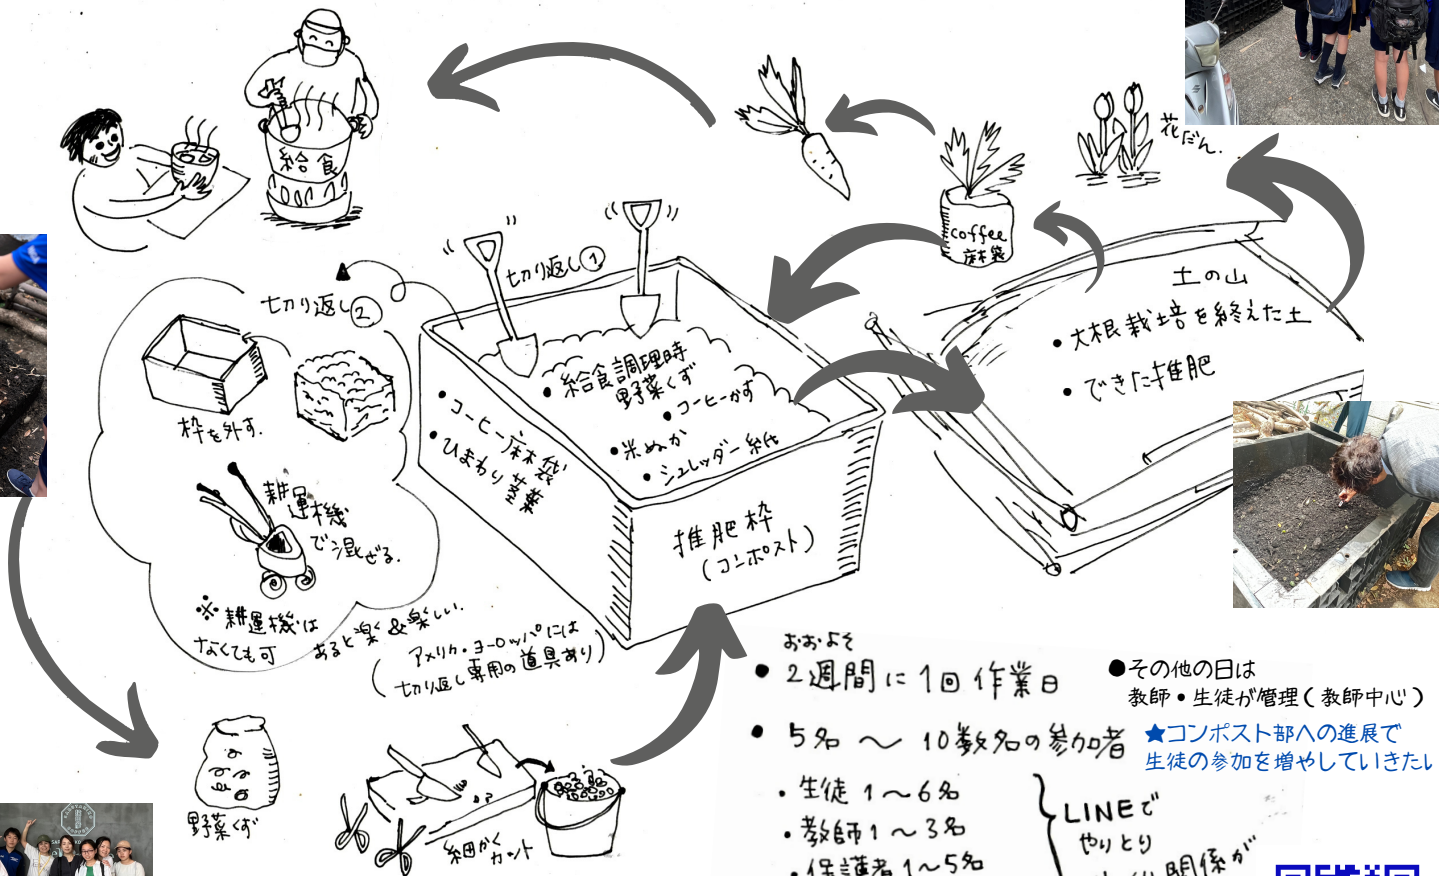 給食
花だん.
coffee
麻袋
切り返し①
切り返し②
枠を外す.
耕運機
で混ぜる.
※耕運機は
なくても可
あると楽&楽しい.
(アメリカ・ヨーロッパには
切り返し専用の道具あり)
・コーヒー麻袋
・ひまわり茎葉
・給食調理時
野菜くず
・コーヒーかす
・米ぬか
・シュレッダー紙
堆肥枠
(コンポスト)
土の山
・大根栽培を終えた土
・できた堆肥
野菜くず
細かく
カット
おおよそ
● 2週間に1回作業日
● 5名 〜 10数名の参加者
・生徒 1〜6名
・教師 1〜3名
・保護者 1〜5名
LINEで
やりとり
関係が
●その他の日は
教師・生徒が管理(教師中心)
★コンポスト部への進展で
生徒の参加を増やしていきたい